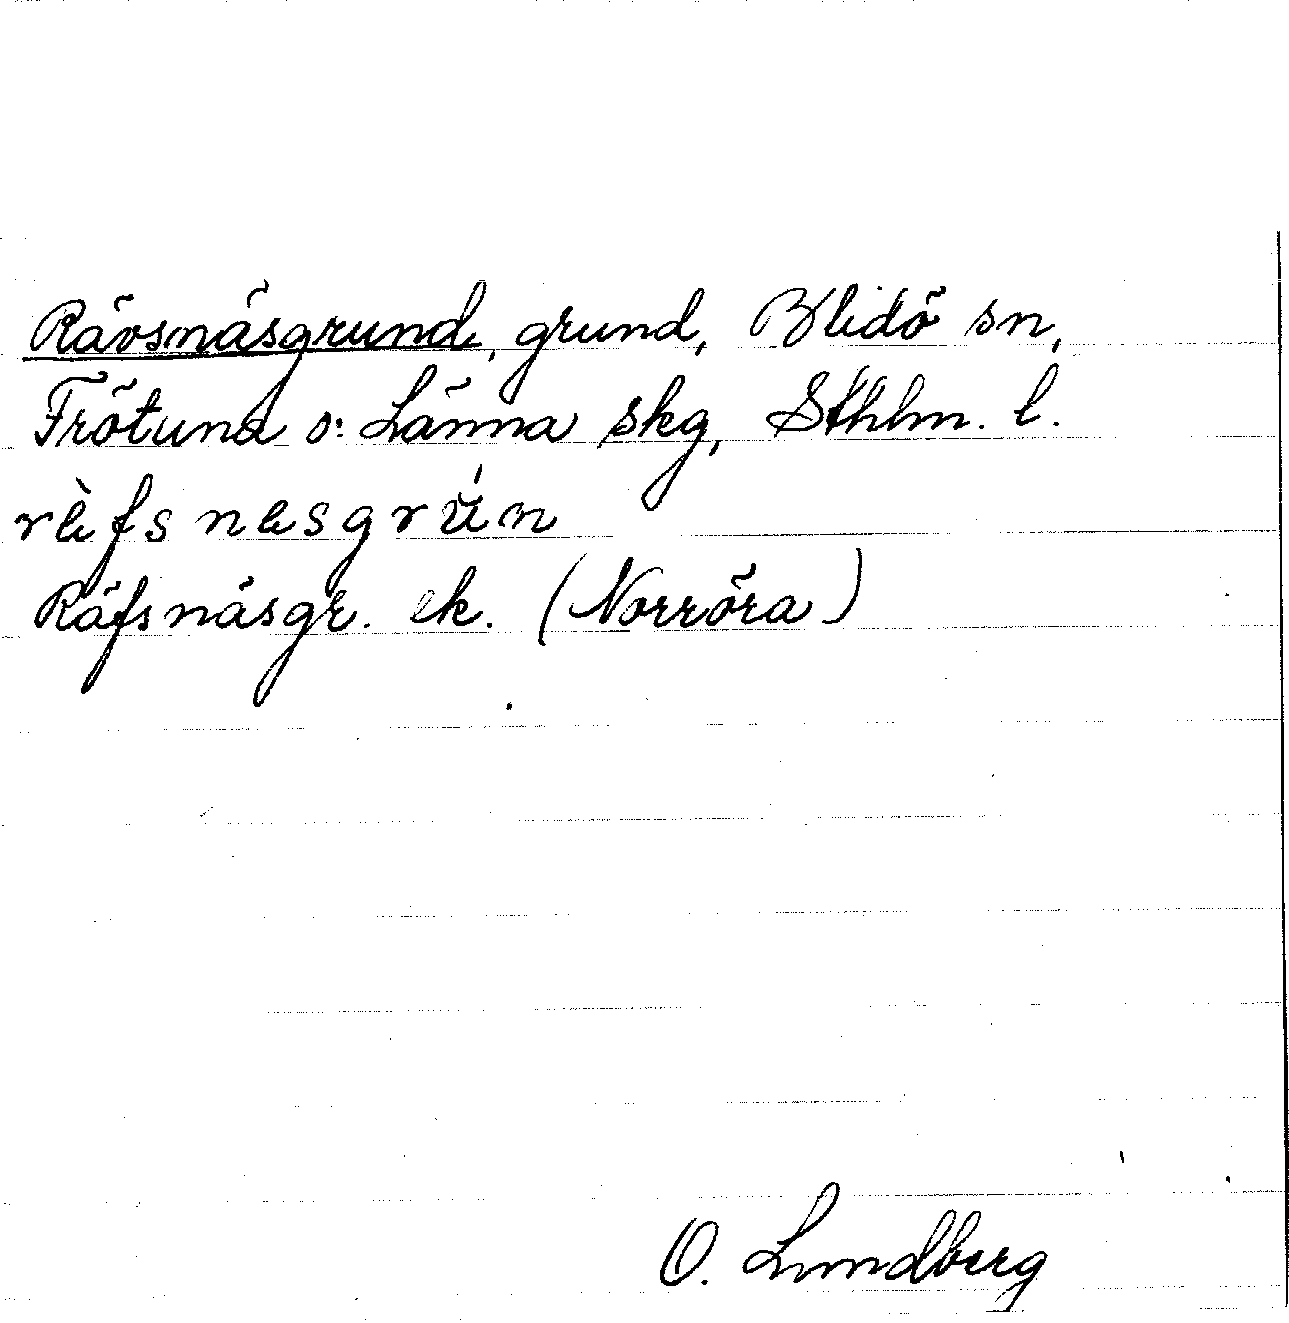 Rävsnäsgrund, grund, Blidö sn,
Frötuna o. Länna skg, Sthlm. l.
rèfsnesgrún
Räfsnäsgr. ek. (Norröra)
O. Lundberg